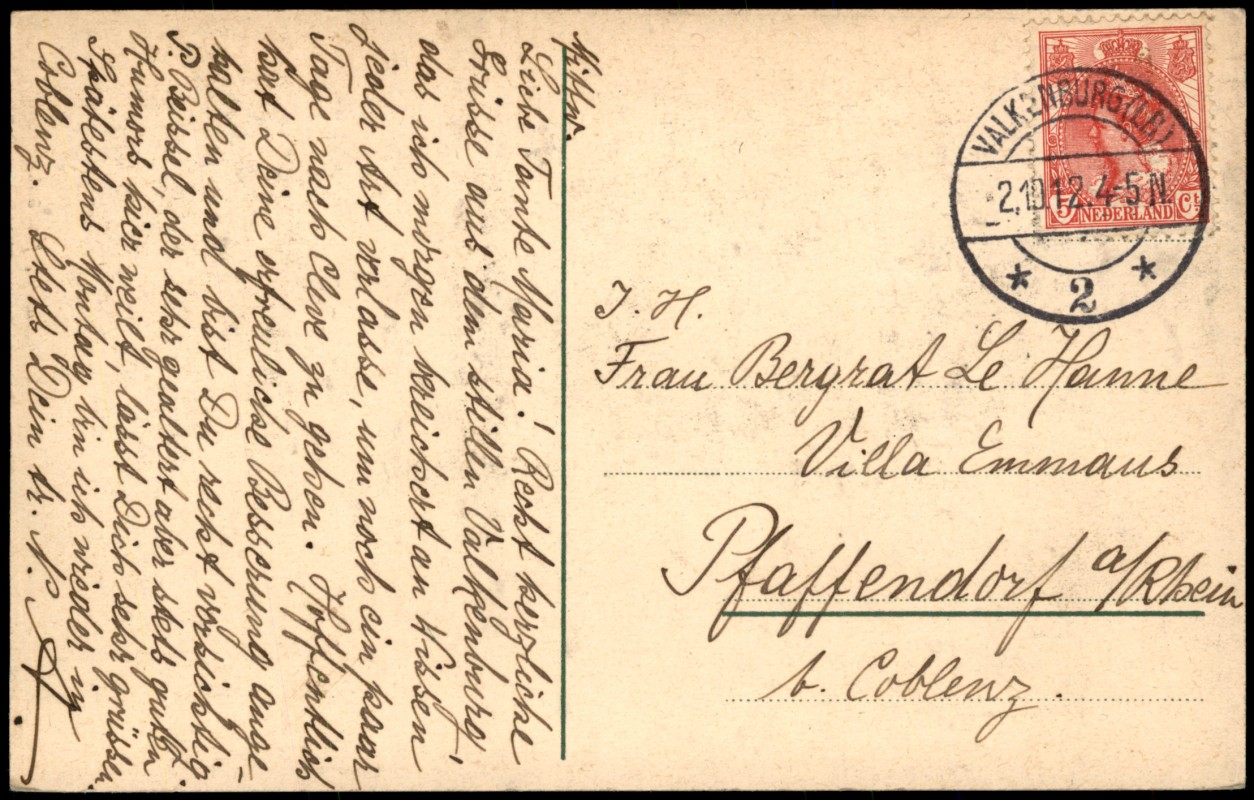 Mittw.
Liebe Tante Maria! Recht herzliche
Grüsse aus dem stillen Valkenburg,
das ich morgen bereichert an Wissen
jeder Art verlasse, um noch ein paar
Tage nach Cleve zu gehen. Hoffentlich
hat Deine erfreuliche Besserung ange-
halten und bist Du recht vorsichtig
P. Beissel, der sehr gealtert aber stets guten
Humors hier weilt, lässt Dich sehr grüssen
Spätestens Montag bin ich wieder in
Coblenz. Stets Dein tr. N.
VALKENBURG (LB.)
2.10.12.4-5 N.
2
5 NEDERLAND Ct
I. H.
Frau Bergrat Le Hanne
Villa Emmaus
Pfaffendorf a/Rhein
b. Coblenz.